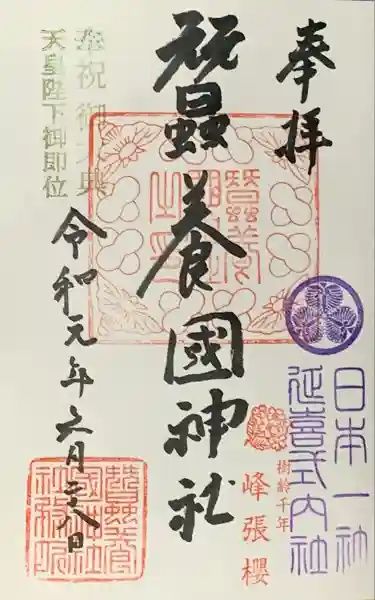 奉拝
日本一社
延喜式内社
樹齢千年
峰張櫻
蠶養國神社
奉祝御大典
天皇陛下御即位
令和元年六月二十八日
蠶養
國神社